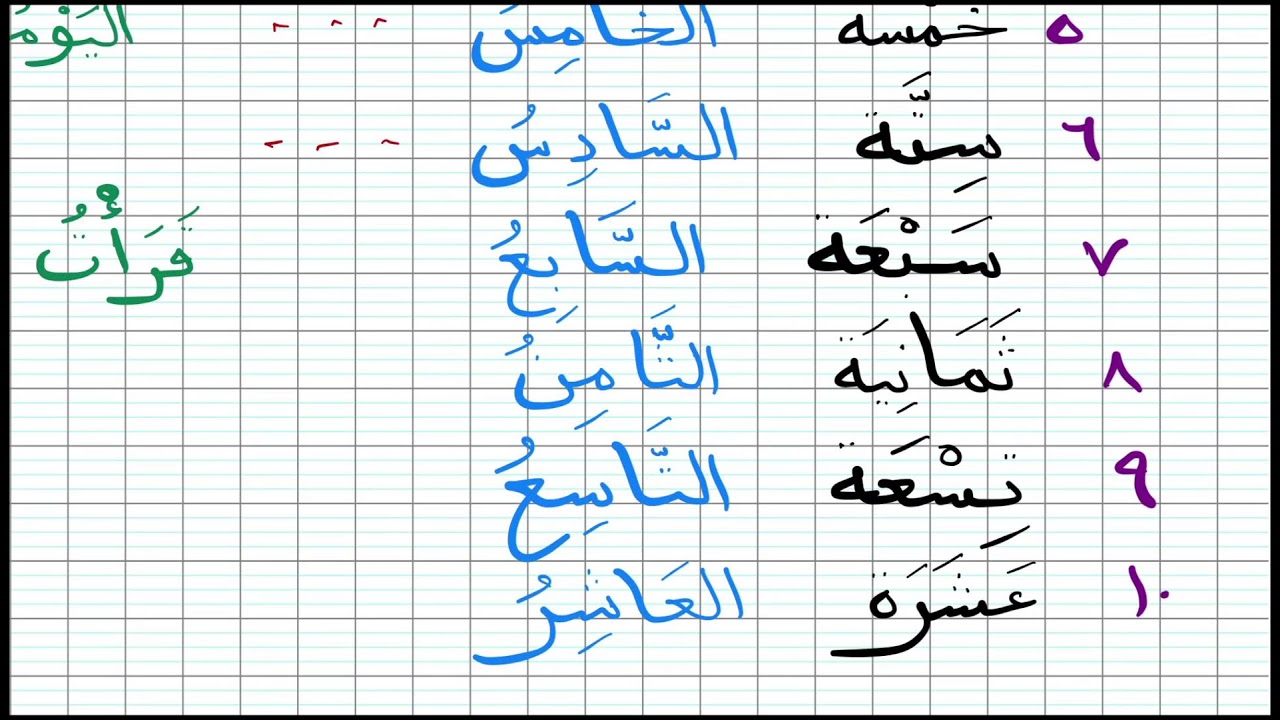 ٥ خَمْسه الخَامِسُ - - - اليَوْمُ
٦ سِتَّة السَّادِسُ - - -
٧ سَبْعَة السَّابِعُ قَرَأْتُ
٨ ثَمَانِيَة الثَّامِنُ
٩ تِسْعَة التَّاسِعُ
١٠ عَشَرَة العَاشِرُ